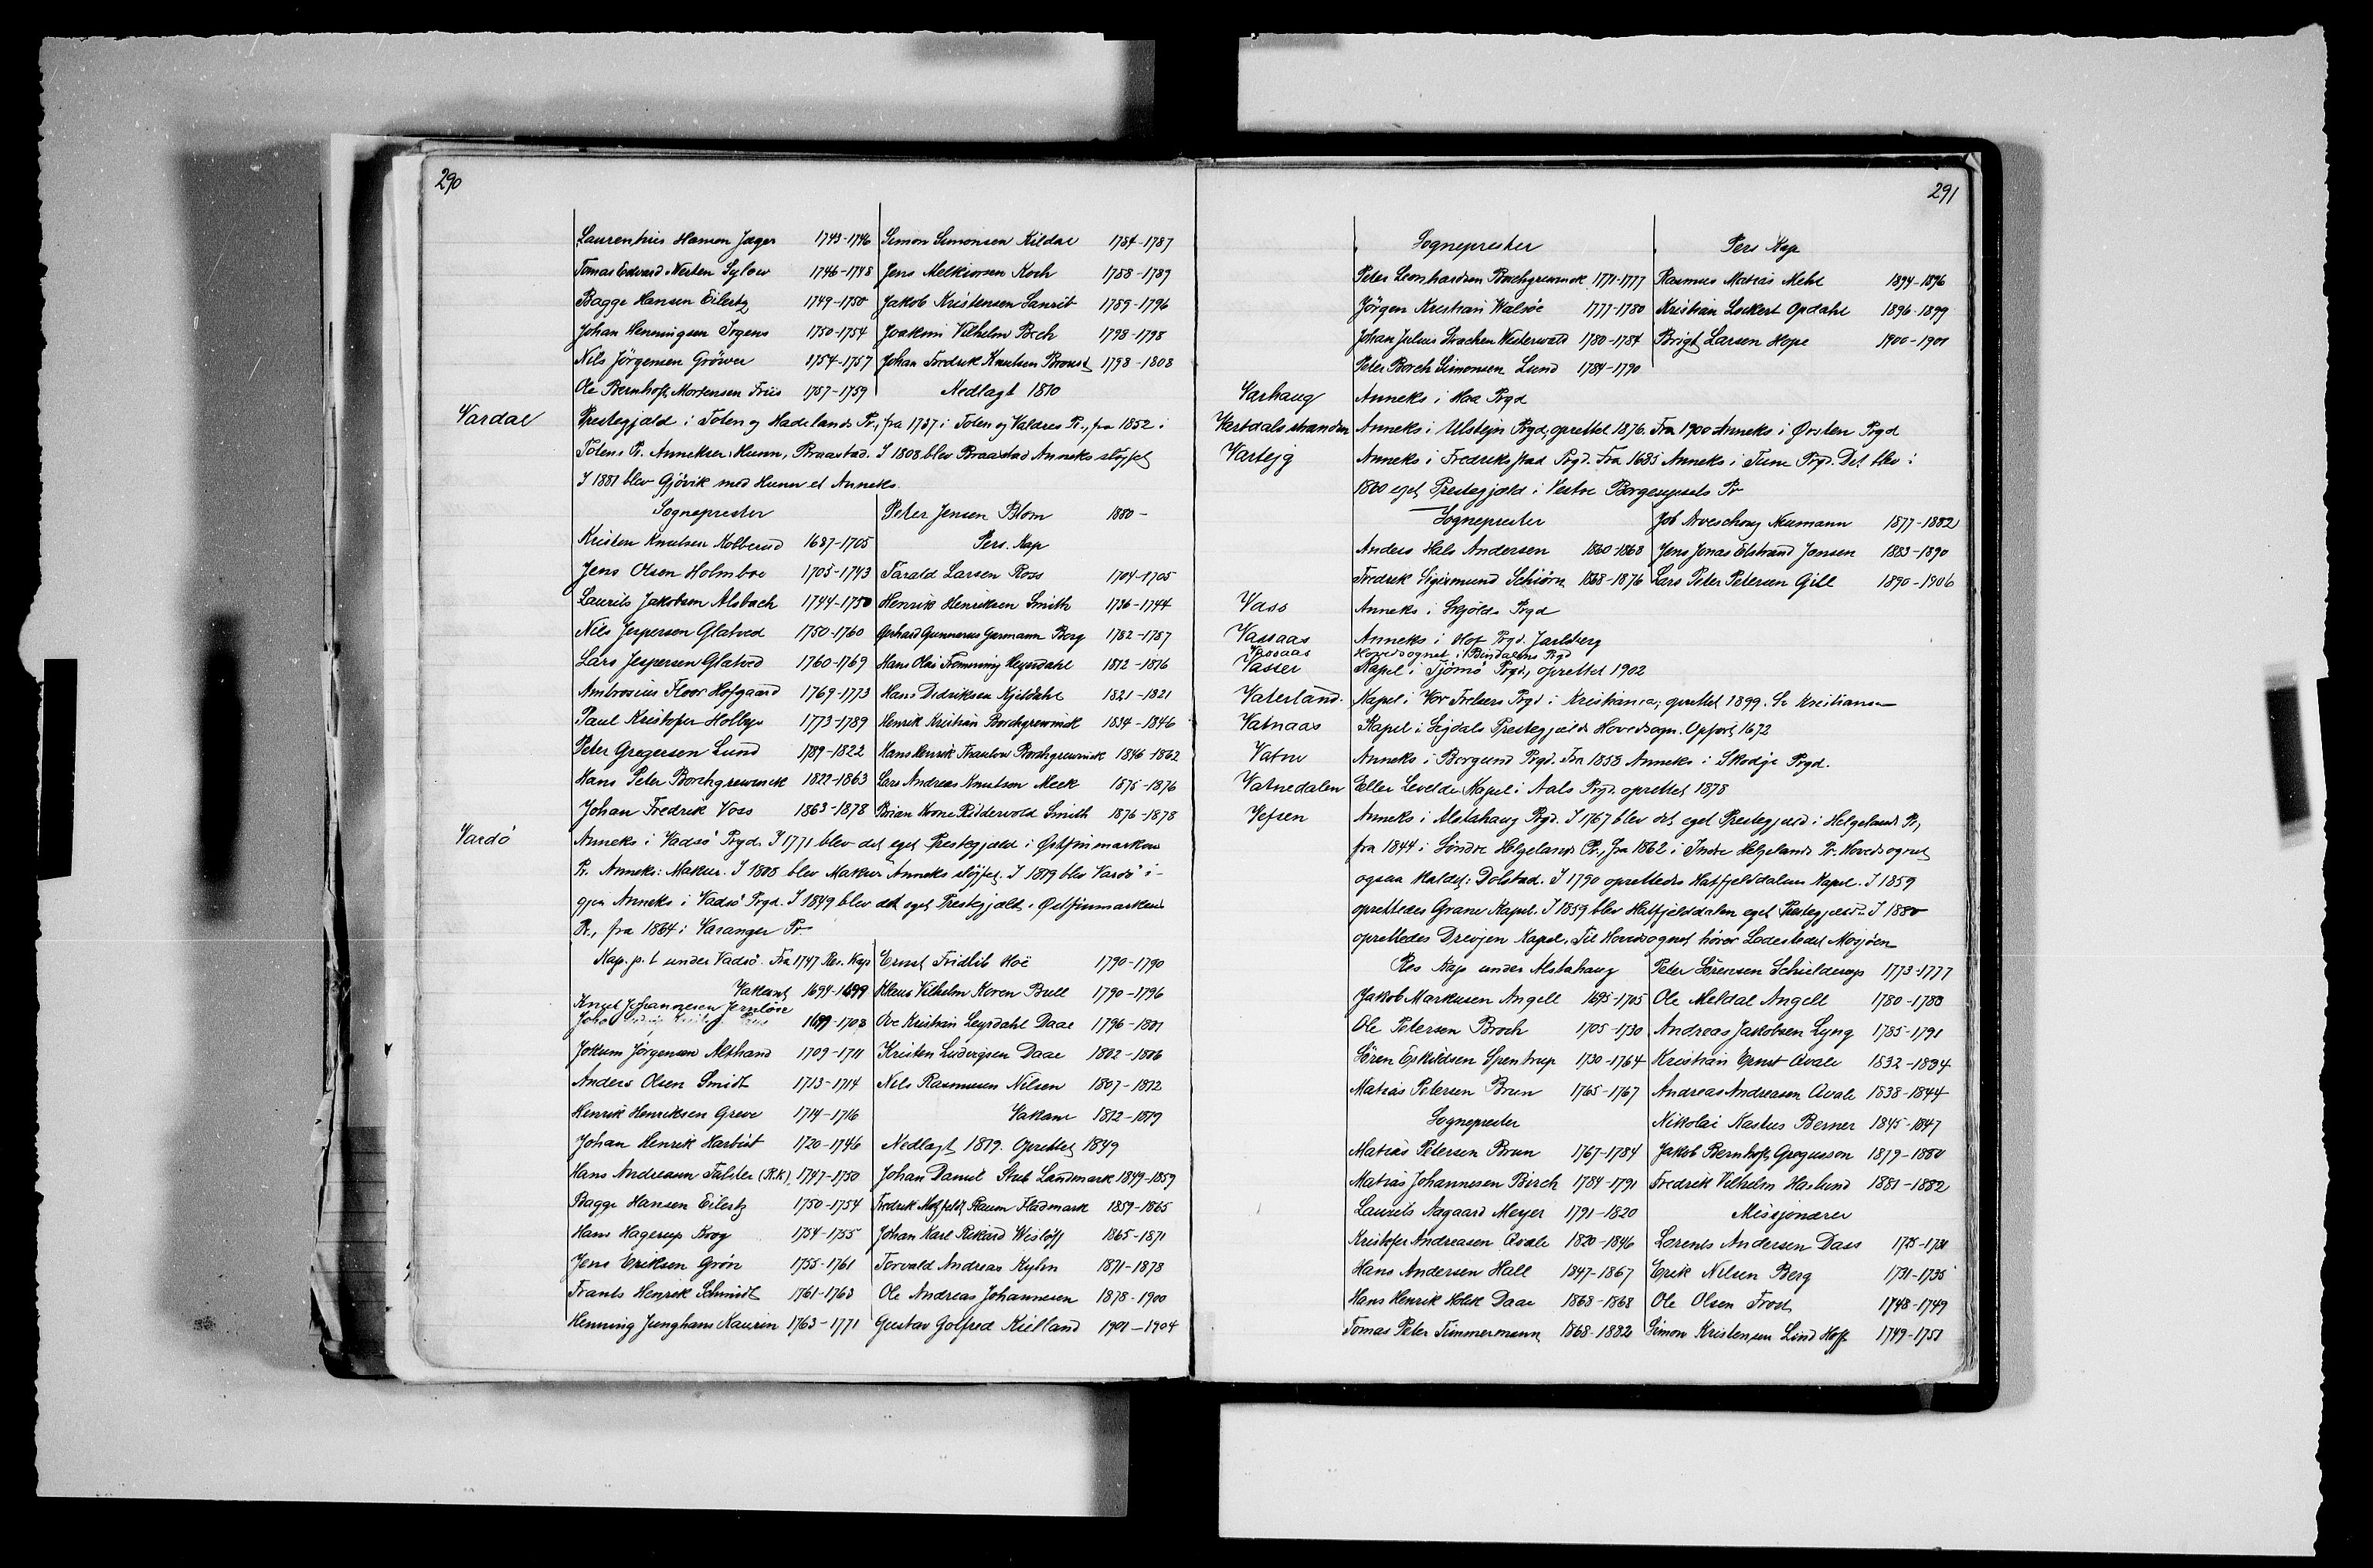 290
Laurentius Hansen Jæger 1743-1746 Simon Simonsen Kildal 1784-1787
Tomas Edvard Nerten Sylow 1746-1748 Jens Melkiorsen Koch 1788-1789
Bagge Hansen Eilertz 1749-1750 Jakob Kristensen Lanrit 1789-1796
Johan Henningsen Irgens 1750-1754 Joakim Vilhelm Bech 1798-1798
Nils Jörgensen Gröwer 1754-1757 Johan Fredrik Knutsen Broust 1798-1808
Ole Bernhoft Mortensen Friis 1757-1759 Nedlagt 1810
Vardal Prestegjæld i Toten og Hadelands Pr., fra 1787 i Toten og Valdres Pr., fra 1852 i
Totens Pr. Annekser: Hunn, Braastad. I 1808 blev Braastad Anneks slöjfet
I 1881 blev Gjövik med Hunn et Anneks.
Sogneprester Peter Jensen Blom 1880-
Kristen Knutsen Kolberud 1687-1705 Pers. Kap
Jens Olsen Holmboe 1705-1743 Tarald Larsen Ross 1704-1705
Laurits Jakobsen Alsbach 1744-1750 Henrik Henriksen Smith 1736-1744
Nils Jespersen Glatved 1750-1760 Gerhard Gunnerus Garmann Berg 1782-1787
Lars Jespersen Glatved 1760-1769 Hans Olai Fremming Heyerdahl 1812-1816
Ambrosius Floor Hofgaard 1769-1773 Hans Didriksen Kjeldahl 1821-1821
Paul Kristofer Holby 1773-1789 Henrik Kristian Borchgrevink 1834-1846
Peter Gregersen Lund 1789-1822 Hans Henrik Thaulow Borchgrevink 1846-1862
Hans Peter Borchgrevink 1822-1863 Lars Andreas Knutson Meek 1875-1876
Johan Fredrik Voss 1863-1878 Brian Krone Ridderwold Smith 1876-1878
Vardö Anneks i Vadsö Prgd. I 1771 blev det eget Prestegjæld i Østfinmarkens
Pr. Anneks: Makur. I 1808 blev Makur Anneks slöjfet. I 1819 blev Vardö i-
gjen Anneks i Vadsö Prgd. I 1849 blev det eget Prestegjæld i Østfinmarkens
Pr., fra 1864 i Varanger Pr.
Kap. p. t. under Vadsö. Fra 1747 Res. Kap Ernst Fridlib Hoë 1790-1790
Vakant 1694-1699 Klaus Vilhelm Koren Bull 1790-1796
Knud Johannesen Jernlöse
1699-1708 Ove Kristian Leyrdahl Daae 1796-1801
Jokum Jörgensen Althand 1709-1711 Kristen Ludvigsen Daae 1802-1806
Anders Olsen Smidt 1713-1714 Nels Rasmusen Nilsen 1807-1812
Henrik Henriksen Greve 1714-1716 Vakant 1812-1819
Johan Henrik Harbist 1720-1746 Nedlagt 1819. Oprettet 1849
Hans Andreasen Falster (R.K), 1747-1750 Johan Daniel Stub Landmark 1849-1859
Bagge Hansen Eilertz 1750-1754 Fredrik Motzfeldt Raum Fladmark 1859-1865
Hans Hagerup Krog 1754-1755 Johan Karl Rikard Wislöff 1865-1871
Jens Eriksen Grön 1755-1761 Torvald Andreas Kylen 1871-1878
Frants Henrik Schmidt 1761-1763 Ole Andreas Johannesen 1878-1900
Henning Junghans Kaurin 1763-1771 Gustav Gotfred Kielland 1901-1904
291
Sogneprester Pers Kap
Peter Leonhardsen Borchgrevink 1771-1777 Rasmus Matias Mehl 1894-1896
Jörgen Kristian Walsöe 1777-1780 Kristian Lockert Opdahl 1896-1899
Johan Julius Drachen Westerwald 1780-1784 Brigt Larsen Hope 1900-1901
Peter Borch Simonsen Lund 1784-1790
Varhaug Anneks i Haa Prgd
Vartdalsstranden Anneks i Ulstejn Prgd, oprettet 1876. Fra 1900 Anneks i Ørsten Prgd
Vartejg Anneks i Fredriksstad Prgd. Fra 1685 Anneks i Tune Prgd. Det blev i
1860 eget Prestegjæld i Vestre Borgesyssels Pr
Sogneprester Job Aveschoug Neumann 1877-1882
Anders Hals Andersen 1860-1868 Jens Jonas Elstrand Jansen 1883-1890
Fredrik Sigismund Schiörn 1868-1876 Lars Peter Petersen Gill 1890-1906
Vass Anneks i Skjölds Prgd
Vassaas Anneks i Hof Prgd. Jarlsberg
Vassaas Hovedsognet i Bindalens Prgd
Vasser Kapel i Tjömö Prgd, oprettet 1902
Vaterland. Kapel i Vor Frelsers Prgd i Kristiania, oprettet 1899. Se Kristiania
Vatnaas Kapel i Sigdals Prestegjælds Hovedsogn. Opfört 1672
Vatne Anneks i Borgund Prgd. Fra 1858 Anneks i Skodje Prgd.
Vatnedalen Eller Levelde, Kapel i Aals Prgd. oprettet 1878
Vefsen Anneks i Alstahaug Prgd. I 1767 blev det eget Prestegjæld i Helgelands Pr,
fra 1844 i Söndre Helgelands Pr., fra 1862 i Indre Helgelands Pr. Hovedsognet
ogsaa kaldet: Dolstad. I 1790 oprettedes Hatfjelddalens Kapel. I 1859
oprettedes Grane Kapel. I 1859 blev Hatfjelddalen eget Prestegjæld. I 1880
oprettedes Drevjen Kapel. Til Hovedsognet hörer Ladestedet Mosjöen
Res Kap under Alstahaug Peter Sörensen Schielderup 1773-1777
Jakob Markusen Angell 1695-1705 Ole Meldal Angell 1780-1783
Ole Petersen Broch 1705-1730 Andreas Jakobsen Lyng 1785-1791
Sören Eskildsen Spentrup 1730-1764 Kristian Ernst Qvale 1832-1834
Matias Petersen Brun 1765-1767 Andreas Andreasen Qvale 1838-1844
Sogneprester Nikolai Kastus Berner 1845-1847
Matias Petersen Brun 1767-1784 Jakob Bernhoft Gregusson 1879-1880
Matias Johannesen Birch 1784-1791 Fredrik Vilhelm Haslund 1881-1882
Laurits Aagaard Meyer 1791-1820 Missjonærer
Kristofer Andreasen Qvale 1820-1846 Lorents Andersen Dass 1725-1731
Hans Andersen Hall 1847-1867 Erik Nilsen Berg 1731-1735
Hans Henrik Holck Daae 1868-1868 Ole Olsen Frost 1748-1749
Tomas Peter Timmermann 1868-1882 Simon Kristensen Lind Hoff 1749-1751